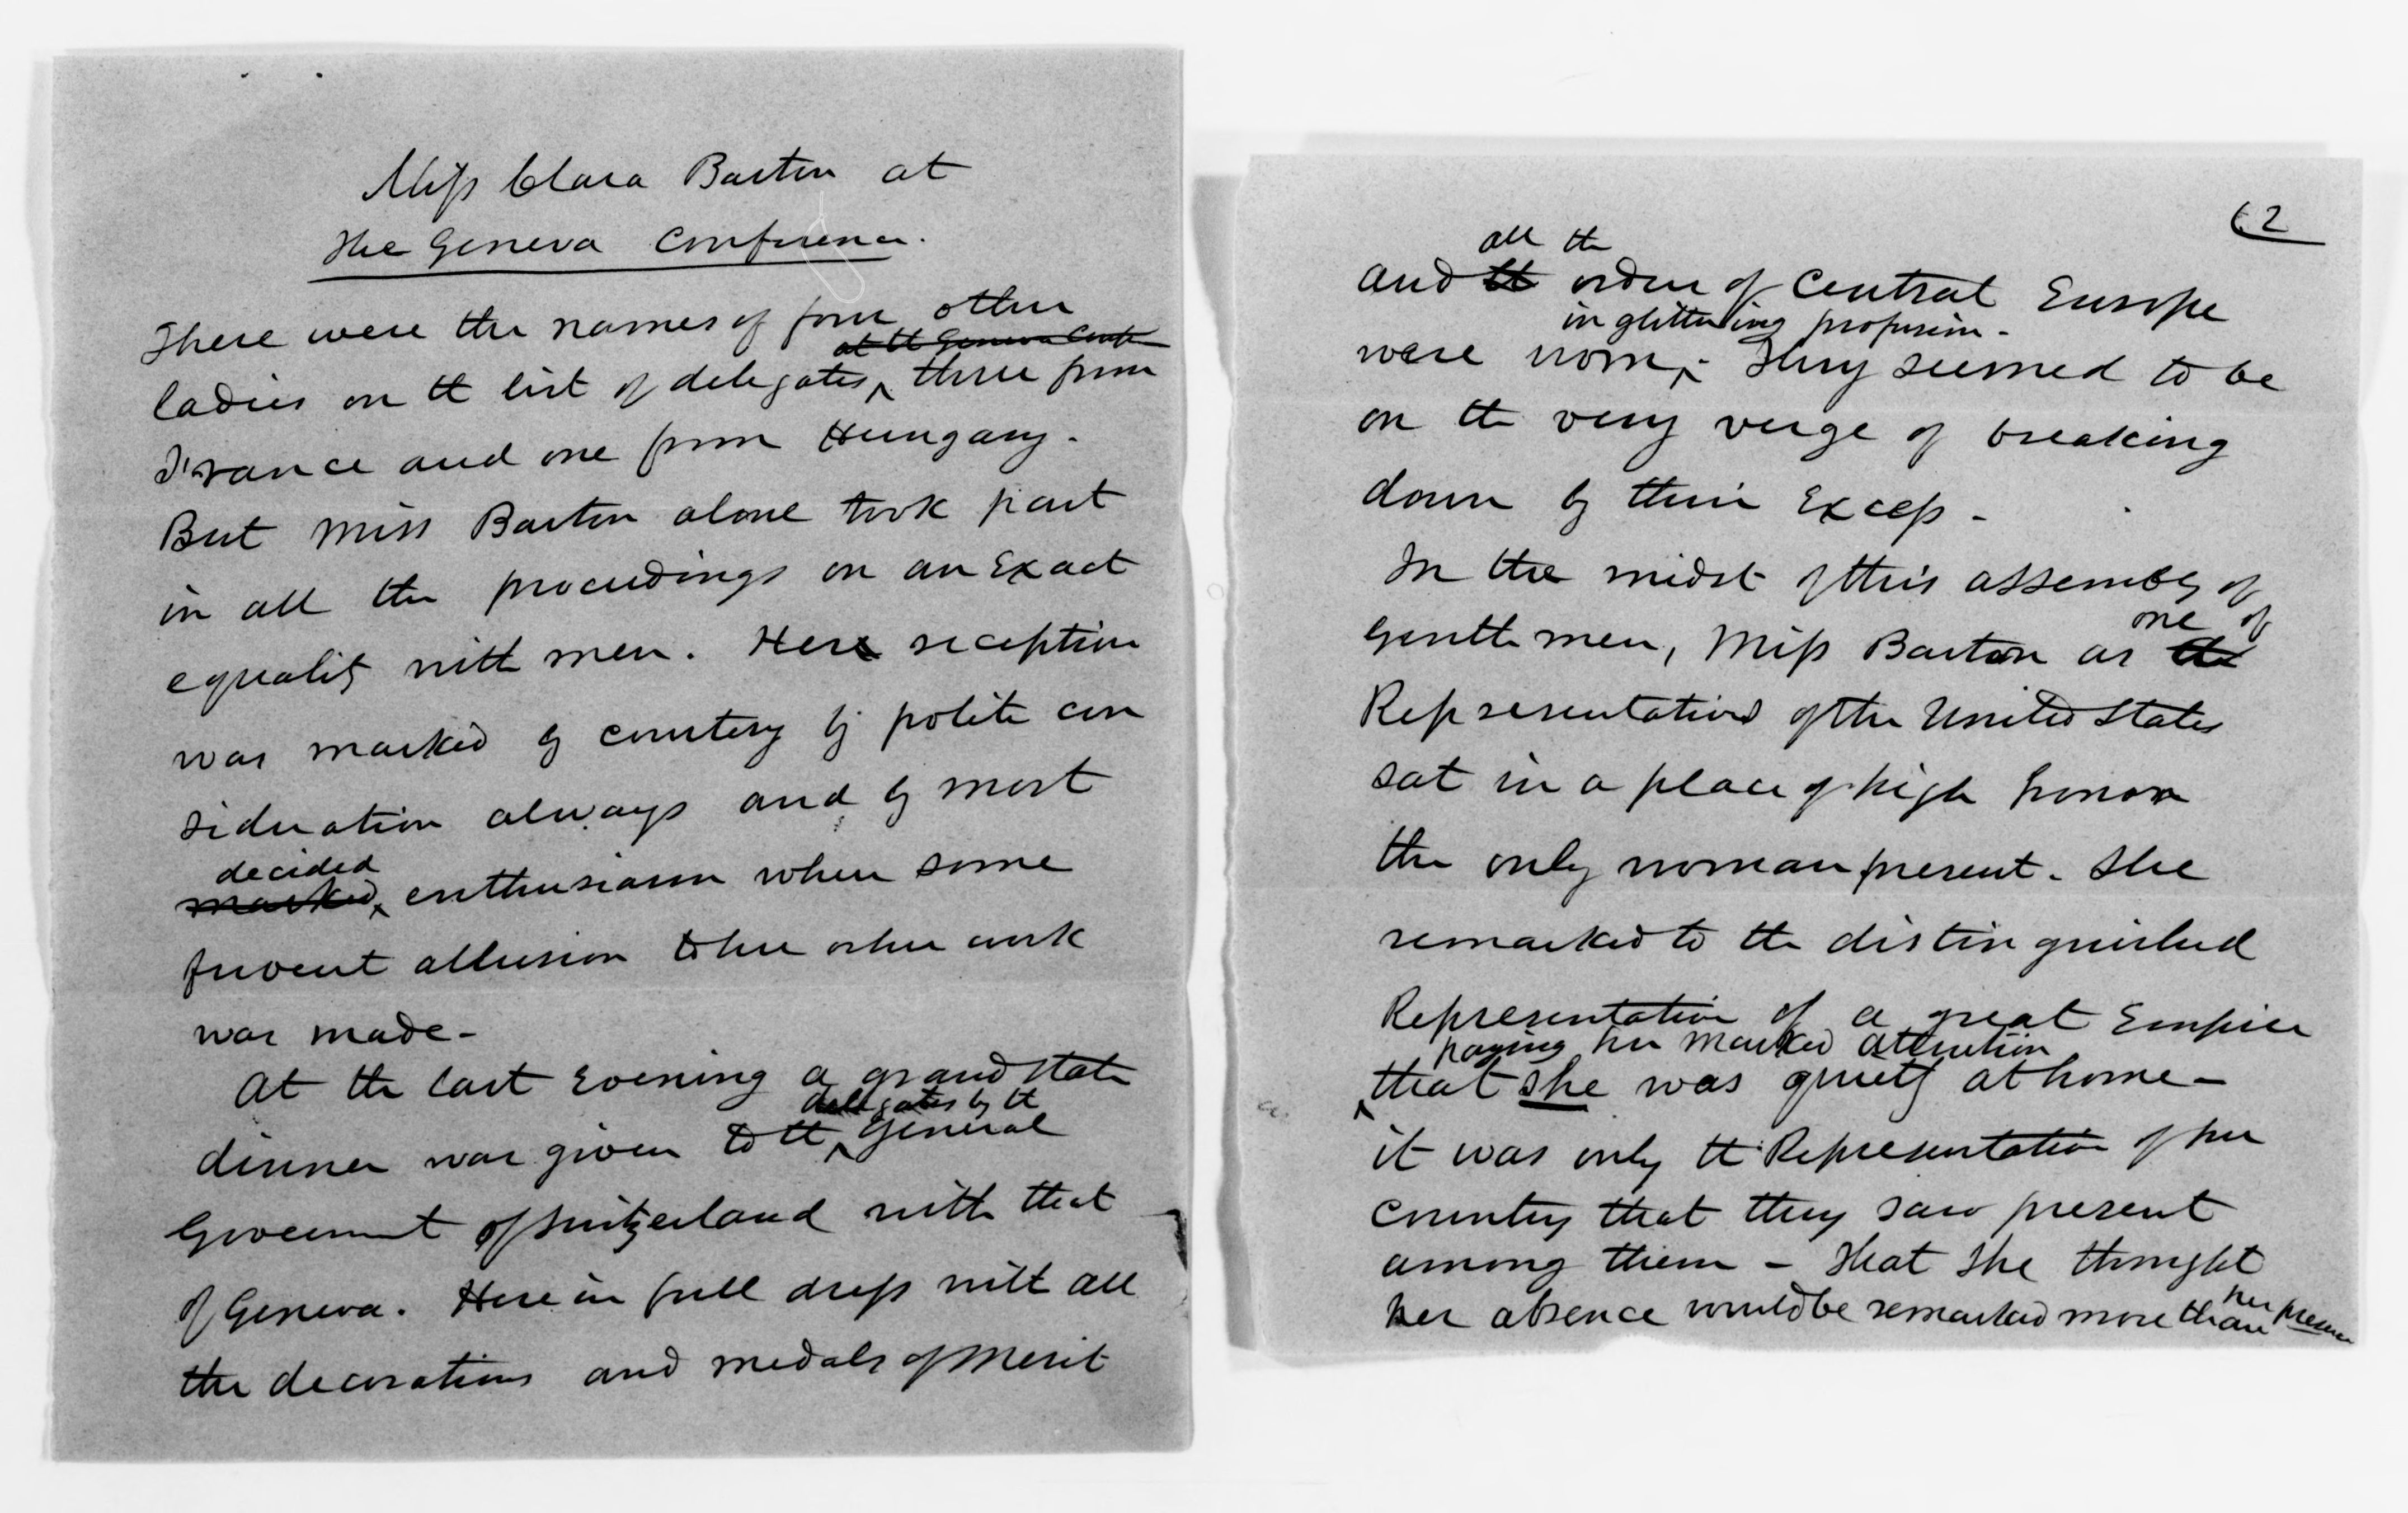 Miss Clara Barton at
the Geneva Conference.
There were the names of four other
at tt Geneva Conf
ladies on tt list of delegates, three from
France and one from Hungary.
But Miss Barton alone took part
in all the proceedings on an Exact
equality with men. Here reception
was marked by courtesy by polite con
sideration always and by most
decided
marked enthusiasm when some
fervent allusion to her or her work
was made-
At the last Evening a grand state
delegates by tt
dinner was given to tt General
Goverment of Switzerland with that
of Geneva. Here in full dress with all
the decorations and medals of Merit
62
all the
and tt orders of Central Europe
in glittering profusion-
were worn,- They seemed to be
on the very verge of breaking
down by their Excess-
In the midst of this assembly of
one of
Gentlemen, Miss Barton as the
Representatives of the United States
sat in a place of high honor
the only woman present. She
remarked to the distinguished
Representative of a great Empire
paying her marked attention
that she was quietly at home-
it was only tt Representative of her
Country that they saw present
among them - That she thought
her
her absence would be remarked more than presence